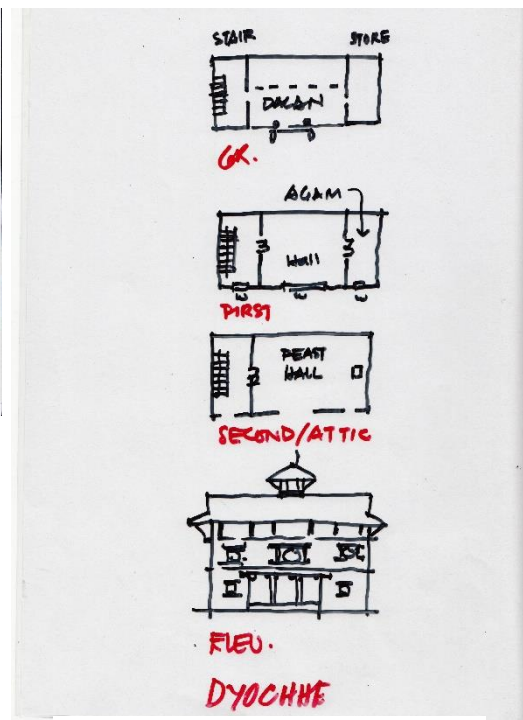 STAIR STORE
DALAN
GR.
AGAM
Hall
FIRST
FEAST
HALL
SECOND/ATTIC
ELEV.
DYOCHHE